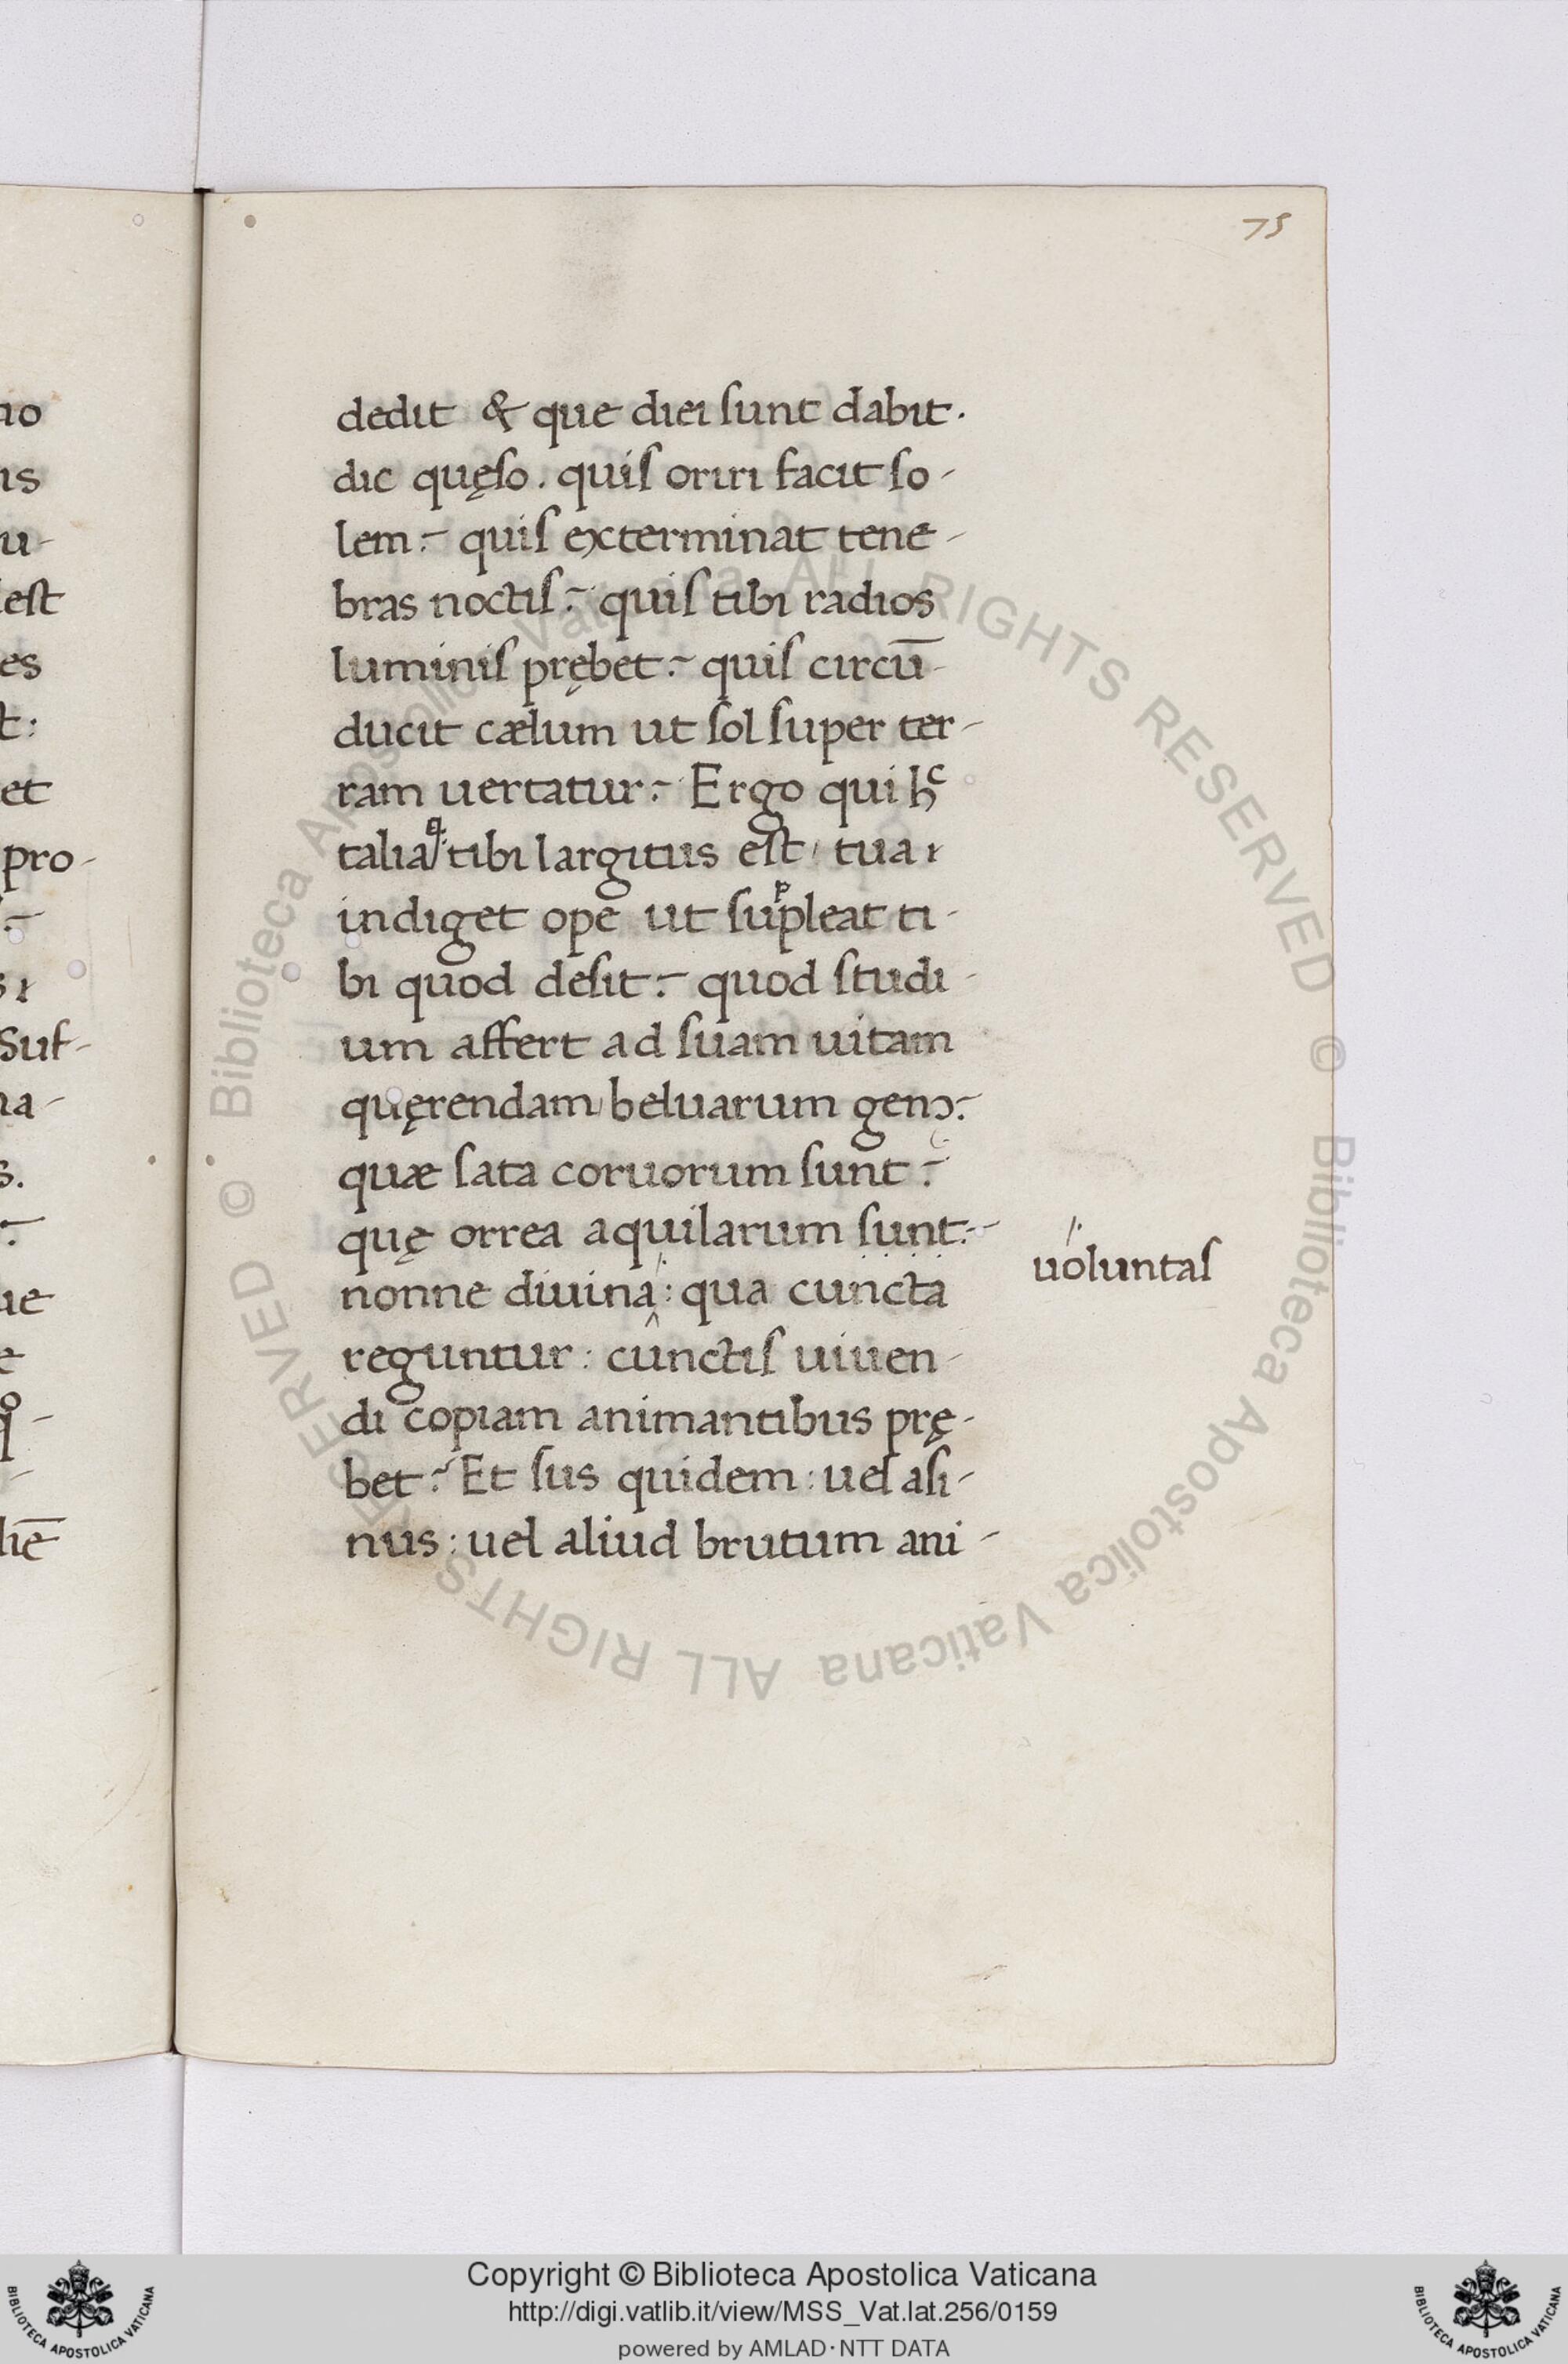 75
dedit & que diei sunt dabit.
dic quęso. quis oriri facit so-
lem? quis exterminat tene-
bras noctis? quis tibi radios
luminis prębet? quis circū-
ducit cælum ut sol super ter-
ram uertatur? Ergo qui hͨ
talia tibi largitus est, tua
indiget ope ut supleat ti-
bi quod desit? quod studi-
um affert ad suam uitam
quęrendam beluarum genꝰ?
quæ sata coruorum sunt?
quę orrea aquilarum sunt?
uoluntas
nonne diuina: qua cuncta
reguntur: cunctis uiuen-
di copiam animantibus prę-
bet? Et sus quidem: uel asi-
nus: uel aliud brutum ani-
no
is
u-
est
es
t:
et
pro-
Suf-
na-
s.
ue
e
liē
© Biblioteca Apostolica Vaticana ALL RIGHTS RESERVED © Biblioteca Apostolica Vaticana ALL RIGHTS RESERVED
Copyright © Biblioteca Apostolica Vaticana
http://digi.vatlib.it/view/MSS_Vat.lat.256/0159
powered by AMLAD·NTT DATA
BIBLIOTECA APOSTOLICA VATICANA
BIBLIOTECA APOSTOLICA VATICANA